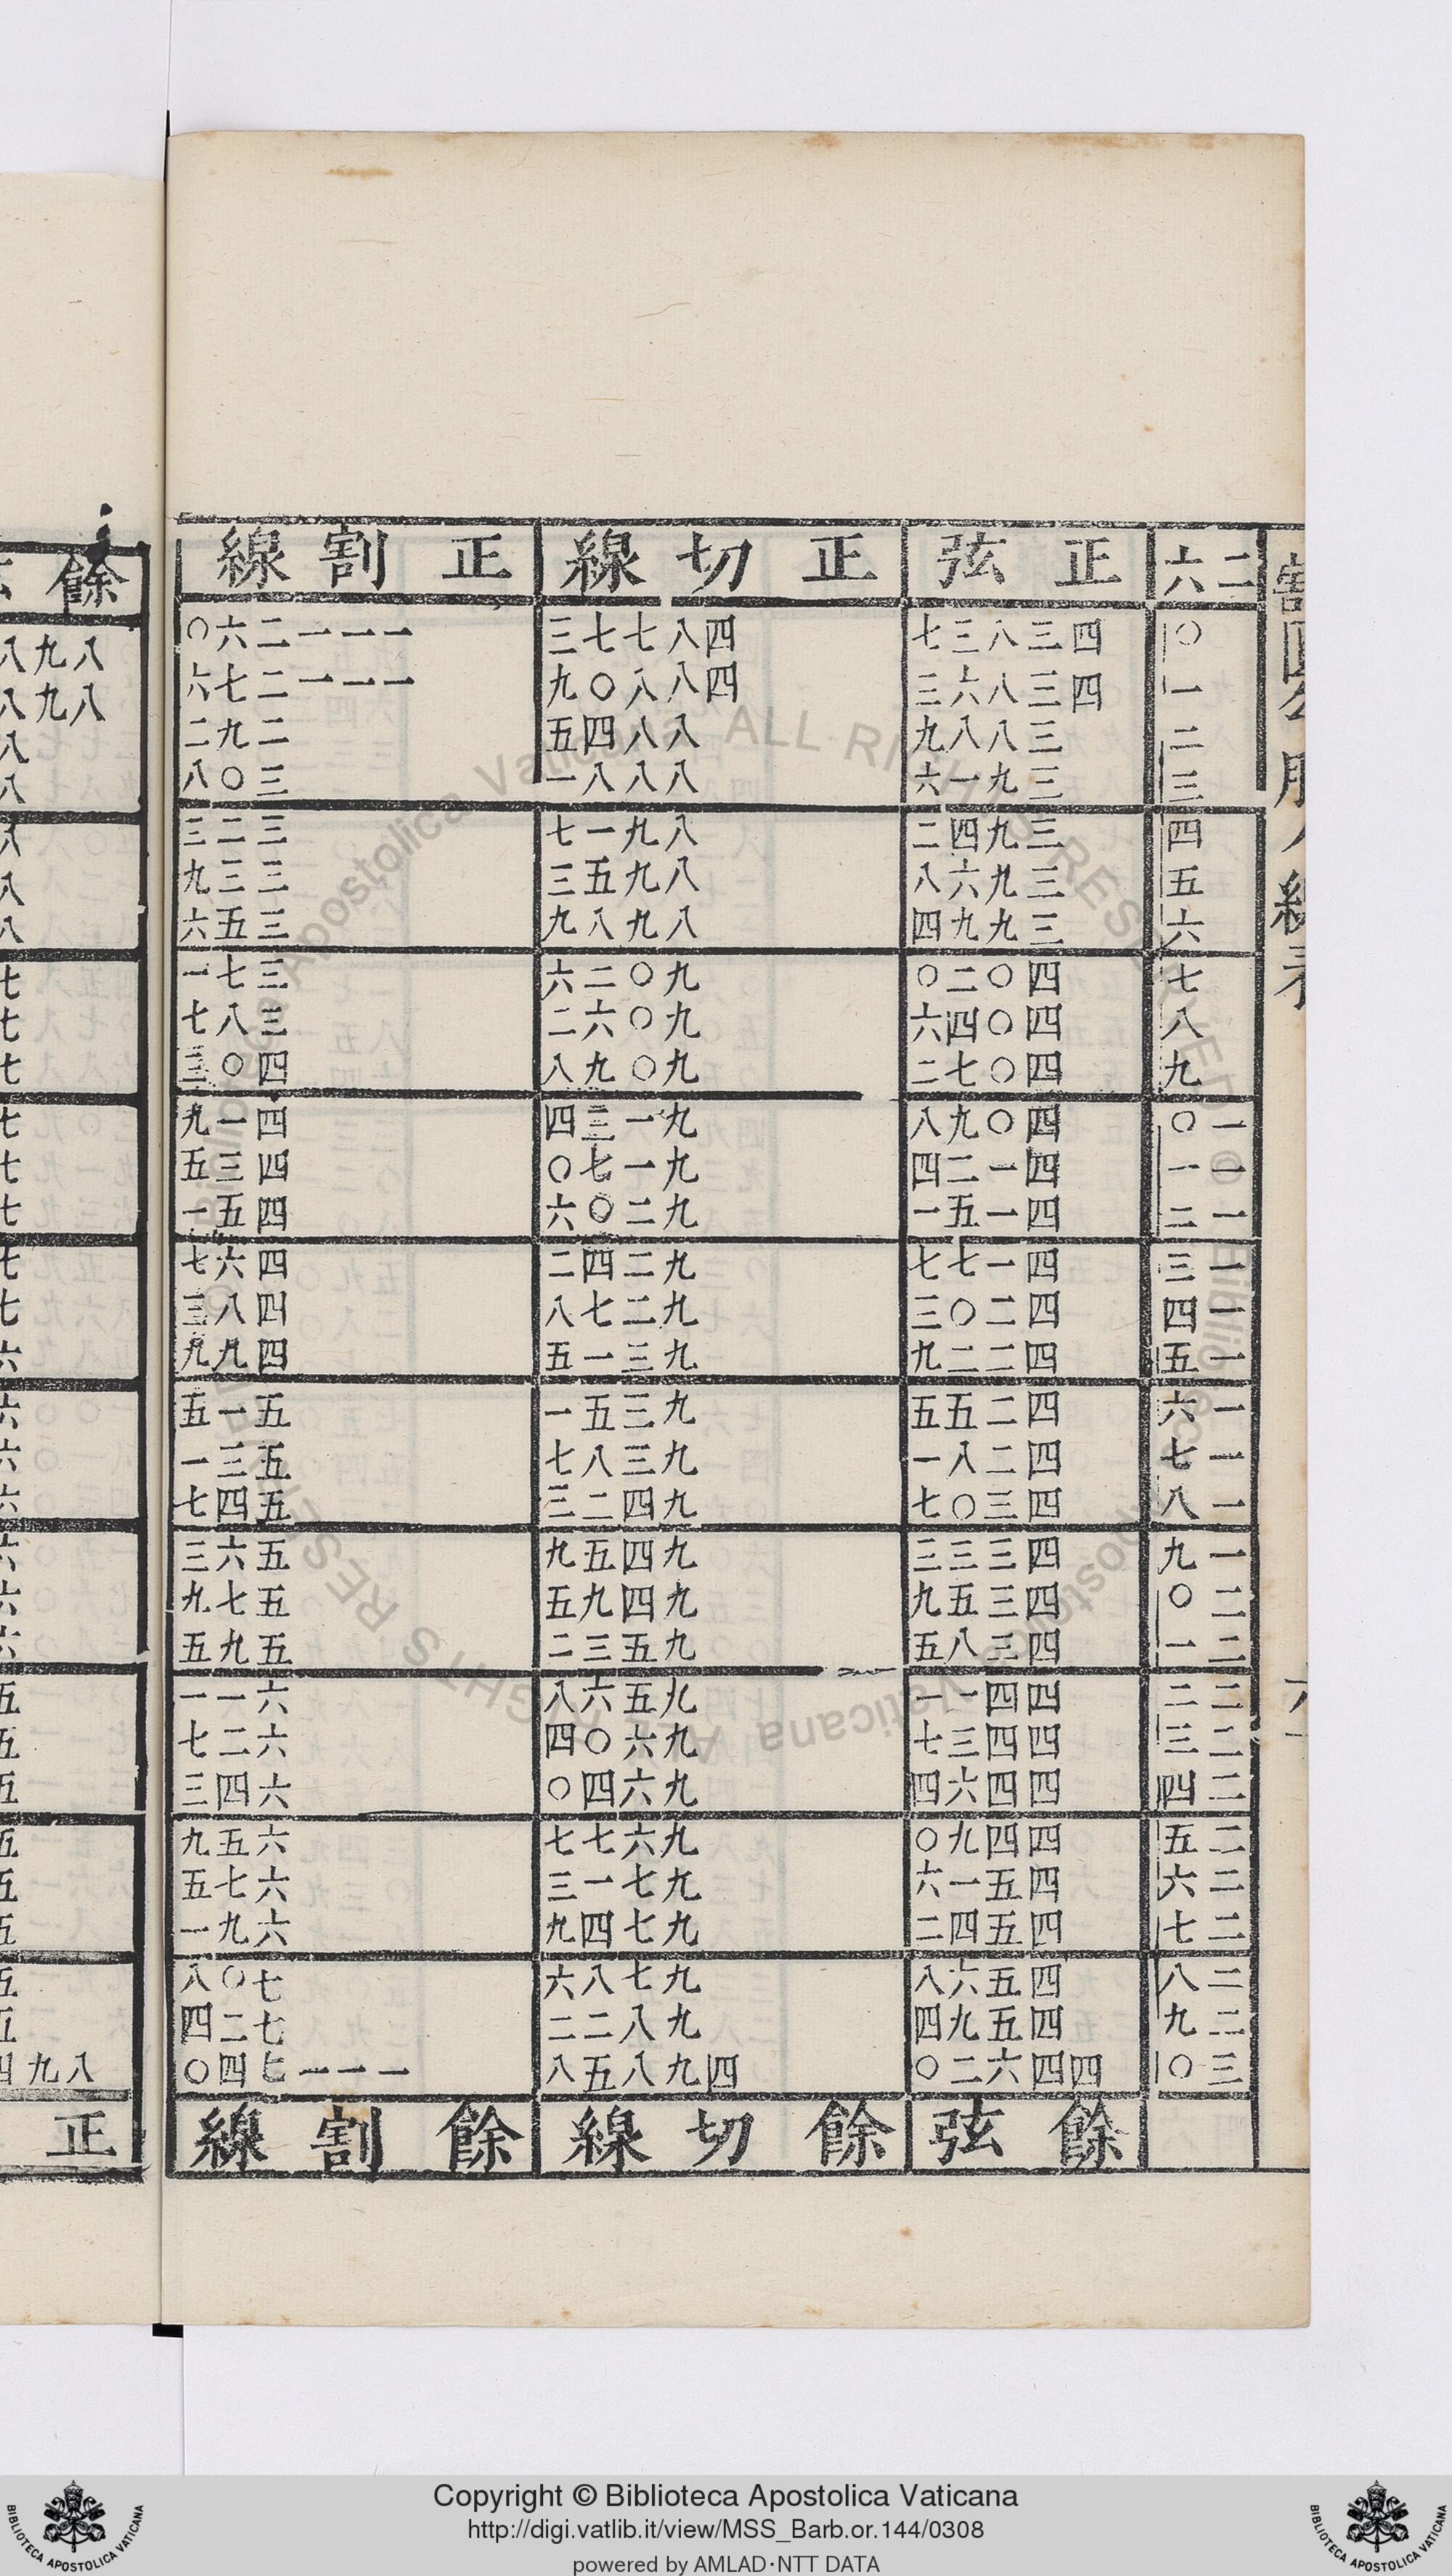 二六 正弦 正切線 正割線 餘
〇 四三八三七 四八七七三 一一一二六〇 八九八
一 四三八六三 四八八〇九 一一一二七六 八九八
二 三八八九 八八四五 二九二 八
三 三九一六 八八八一 三〇八 八
四 三九四二 八九一七 三二三 八
五 三九六八 八九五三 三三九 八
六 三九九四 八九八九 三五六 八
七 四〇二〇 九〇二六 三七一 七
八 四〇四六 九〇六二 三八七 七
九 四〇七二 九〇九八 四〇三 七
一〇 四〇九八 九一三四 四一九 七
一一 四一二四 九一七〇 四三五 七
一二 四一五一 九二〇六 四五一 七
一三 四一七七 九二四二 四六七 七
一四 四二〇三 九二七八 四八三 七
一五 四二二九 九三一五 四九九 六
一六 四二五五 九三五一 五一五 六
一七 四二八一 九三八七 五三一 六
一八 四三〇七 九四二三 五四七 六
一九 四三三三 九四五九 五六三 六
二〇 四三五九 九四九五 五七九 六
二一 四三八五 九五三二 五九五 六
二二 四四一一 九五六八 六一一 五
二三 四四三七 九六〇四 六二七 五
二四 四四六四 九六四〇 六四三 五
二五 四四九〇 九六七七 六五九 五
二六 四五一六 九七一三 六七五 五
二七 四五四二 九七四九 六九一 五
二八 四五六八 九七八六 七〇八 五
二九 四五九四 九八二二 七二四 五
三〇 四四六二〇 四九八五八 一一一七四〇 八九四
餘弦 餘切線 餘割線 正
Copyright © Biblioteca Apostolica Vaticana
http://digi.vatlib.it/view/MSS_Barb.or.144/0308
powered by AMLAD·NTT DATA
BIBLIOTECA APOSTOLICA VATICANA
BIBLIOTECA APOSTOLICA VATICANA